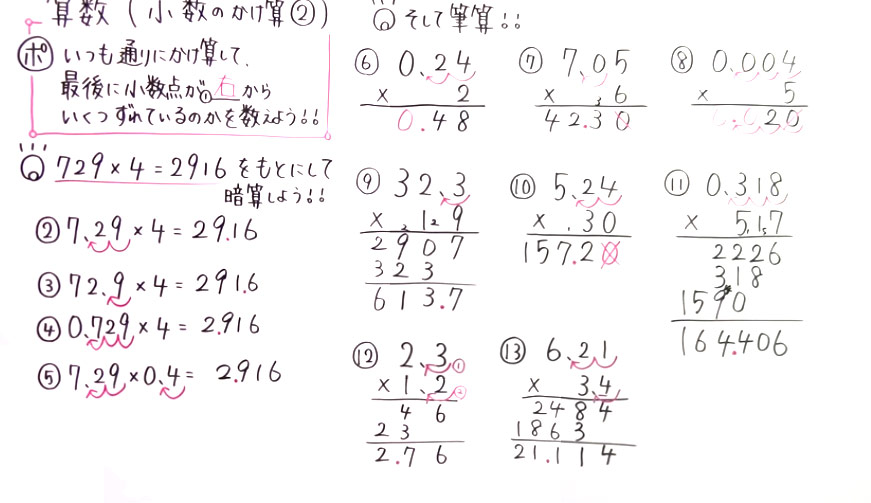 算数(小数のかけ算②)
ポ いつも通りにかけ算して、
最後に小数点が①右から
いくつずれているのかを数えよう!!
729×4=2916をもとにして
暗算しよう!!
② 7.29×4=29.16
③ 72.9×4=291.6
④ 0.729×4=2.916
⑤ 7.29×0.4=2.916
そして筆算!!
⑥ 0.24
× 2
0.48
⑦ 7.05
× 6
3
42.30
⑧ 0.004
× 5
0.020
⑨ 32.3
× 19
2 2
2907
323
613.7
⑩ 5.24
× 30
157.20
⑪ 0.318
× 517
2226
318
1590
164.406
⑫ 2.3 ①
×1.2 ②
46
23
2.76
⑬ 6.21
× 3.4
2484
1863
21.114